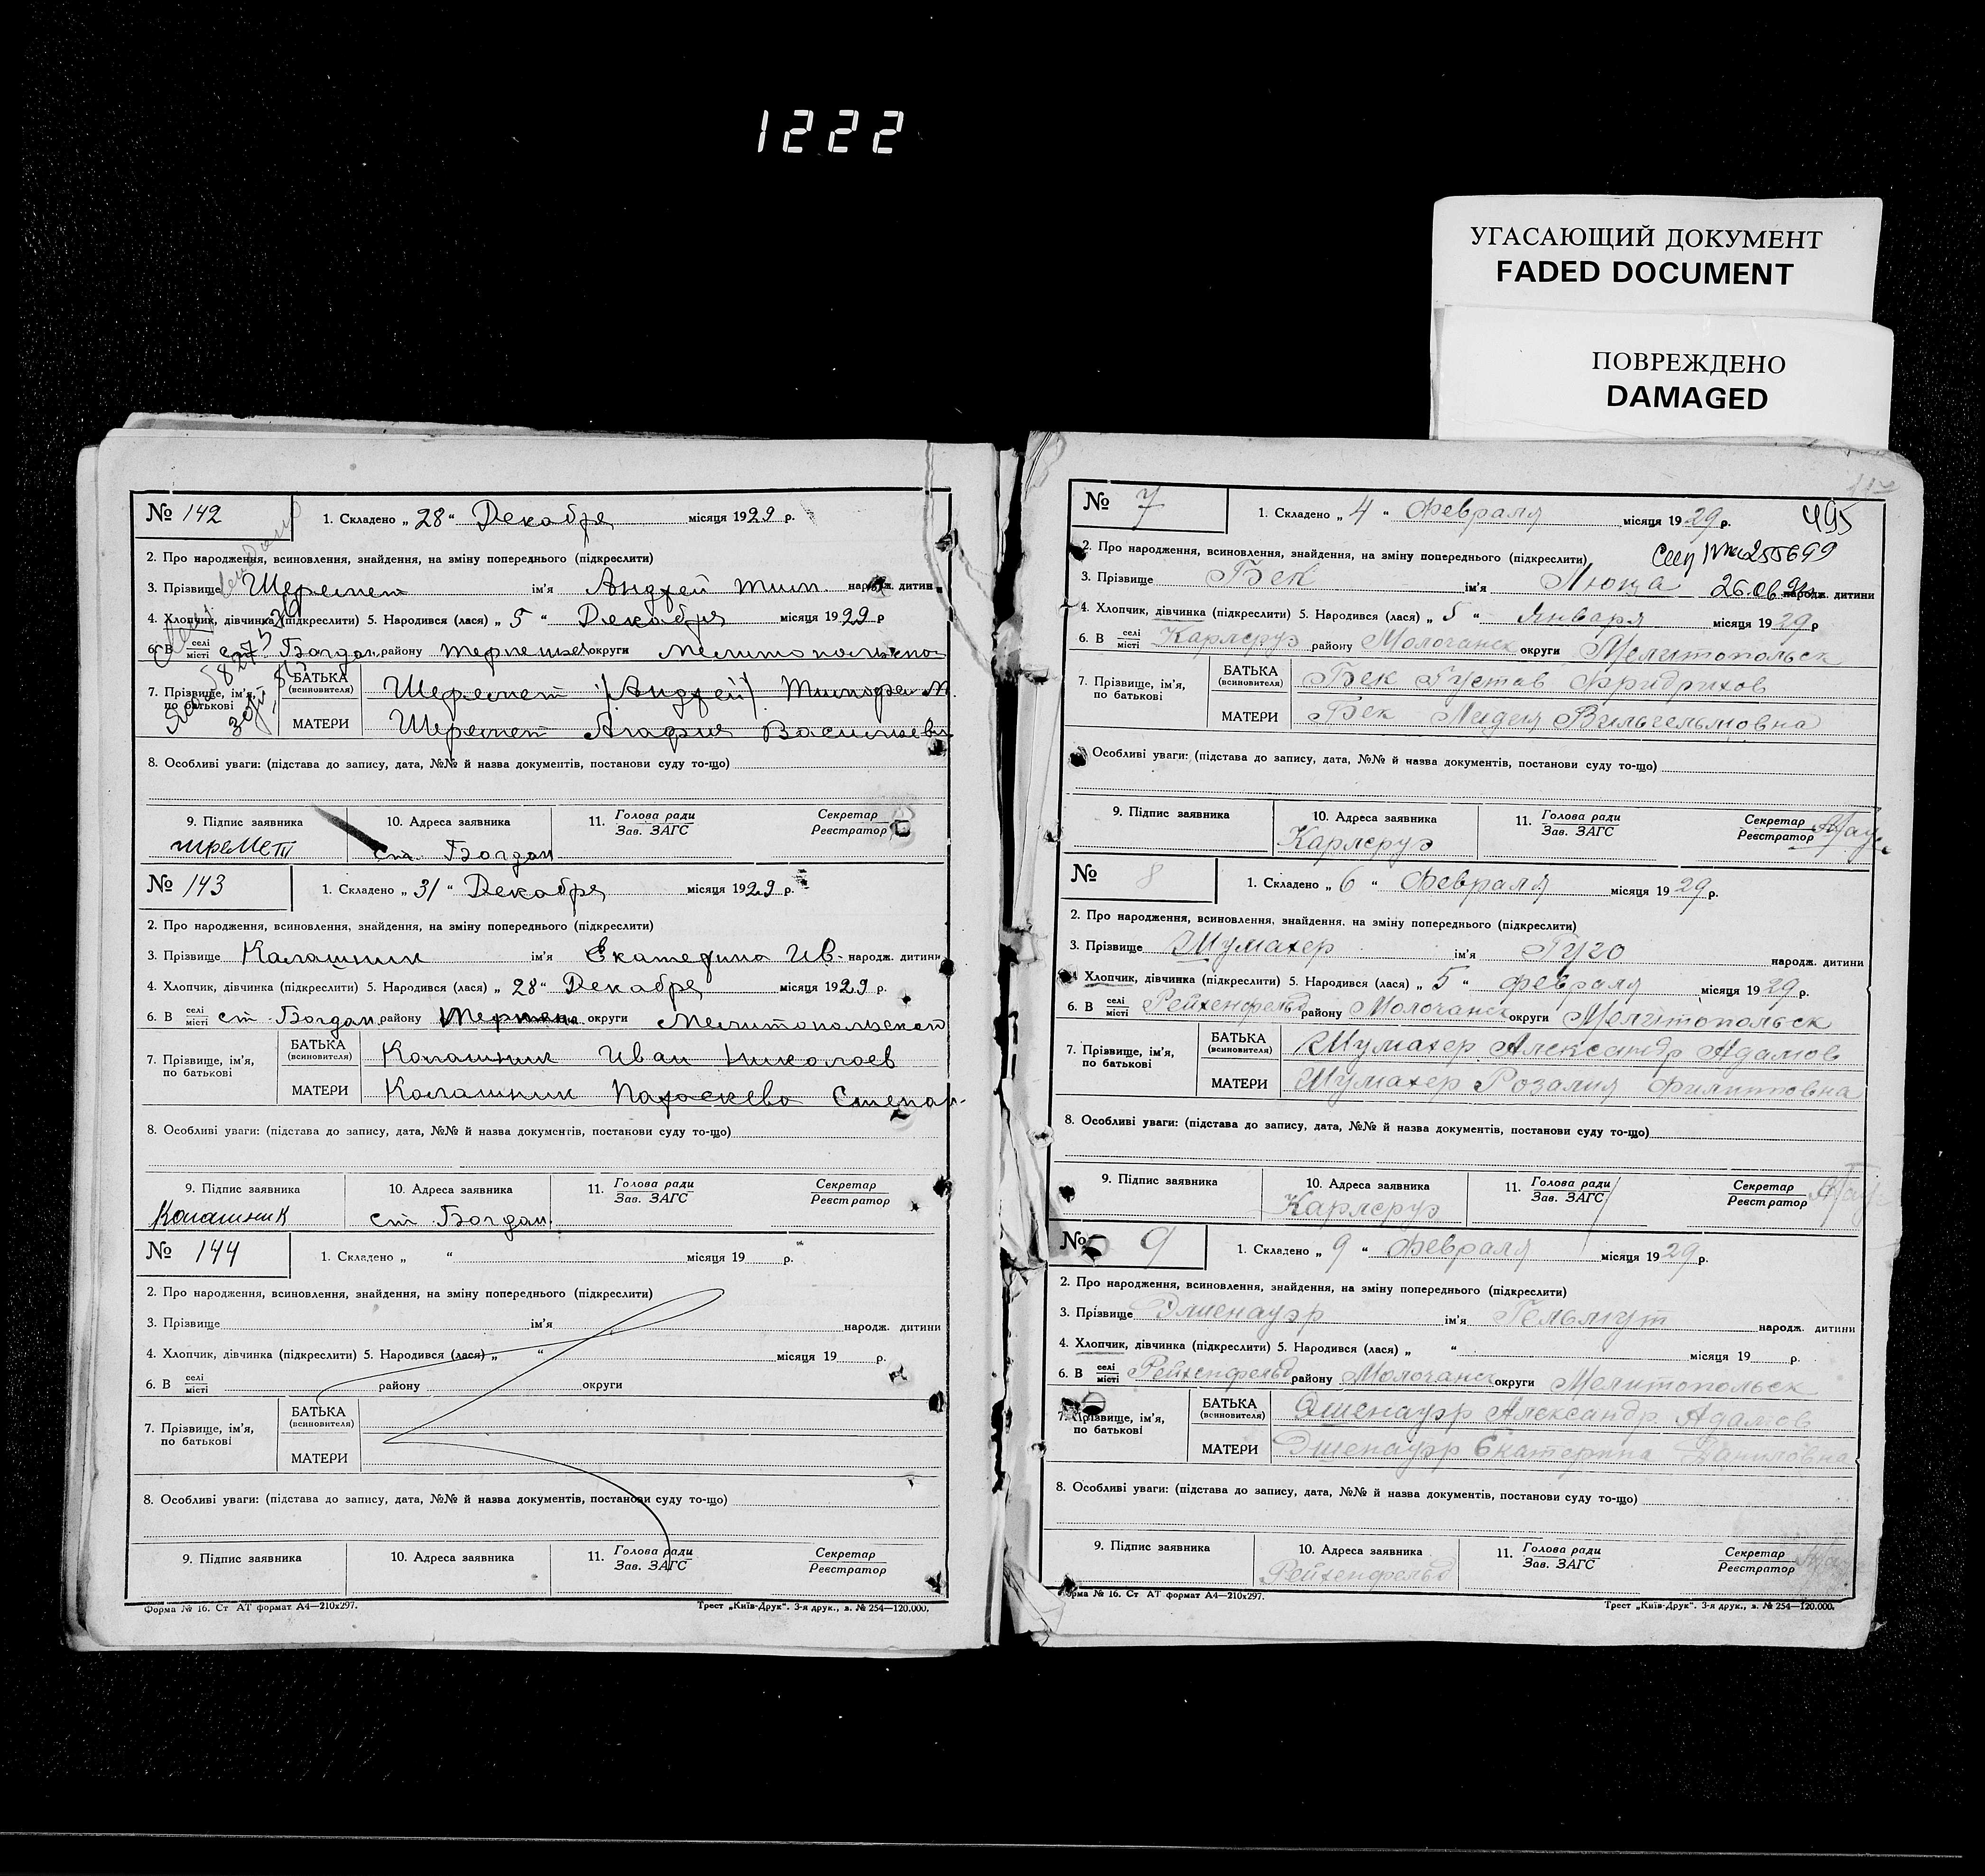 1222
УГАСАЮЩИЙ ДОКУМЕНТ
FADED DOCUMENT
ПОВРЕЖДЕНО
DAMAGED
№ 142
1. Складено „ 28 “ Декабря місяця 1929 р.
2. Про народження, всиновлення, знайдення, на зміну попереднього (підкреслити)
3. Прізвище Шеремет ім'я Андрей Тим народж. дитини
4. Хлопчик, дівчинка (підкреслити) 5. Народився (лася) „ 5 “ Декабря місяця 1929 р
6. В селі місті ст. Богдан району округи
7. Прізвище, ім'я, по батькові
БАТЬКА (всиновителя) Шеремет (Андрей)
МАТЕРИ Шеремет Агафия
8. Особливі уваги: (підстава до запису, дата, №№ й назва документів, постанови суду то-що)
9. Підпис заявника
10. Адреса заявника
11. Голова ради Зав. ЗАГС
Секретар Реєстратор
ст. Богдан
№ 143
1. Складено „ 31 “ Декабря місяця 1929 р.
2. Про народження, всиновлення, знайдення, на зміну попереднього (підкреслити)
3. Прізвище Калашник ім'я Екатерина Ив- народж. дитини
4. Хлопчик, дівчинка (підкреслити) 5. Народився (лася) „ 28 “ Декабря місяця 1929 р.
6. В селі місті ст. Богдан району округи
7. Прізвище, ім'я, по батькові
БАТЬКА (всиновителя) Калашник Иван Николаев
МАТЕРИ Калашник Степан-
8. Особливі уваги: (підстава до запису, дата, №№ й назва документів, постанови суду то-що)
9. Підпис заявника
10. Адреса заявника
11. Голова ради Зав. ЗАГС
Секретар Реєстратор
Калашник
ст. Богдан
№ 144
1. Складено „ “ місяця 19 р.
2. Про народження, всиновлення, знайдення, на зміну попереднього (підкреслити)
3. Прізвище ім'я народж. дитини
4. Хлопчик, дівчинка (підкреслити) 5. Народився (лася) „ “ місяця 19 р.
6. В селі місті району округи
7. Прізвище, ім'я, по батькові
БАТЬКА (всиновителя)
МАТЕРИ
8. Особливі уваги: (підстава до запису, дата, №№ й назва документів, постанови суду то-що)
9. Підпис заявника
10. Адреса заявника
11. Голова ради Зав. ЗАГС
Секретар Реєстратор
Форма № 16. Ст АТ формат А4—210х297.
Трест „Київ-Друк“. 3-я друк., з. № 254—120.000.
№ 7
1. Складено „ 4 “ Февраля місяця 1929 р.
495
2. Про народження, всиновлення, знайдення, на зміну попереднього (підкреслити)
3. Прізвище Бек ім'я Люца народж. дитини
4. Хлопчик, дівчинка (підкреслити) 5. Народився (лася) „ 5 “ Января місяця 1929 р
6. В селі місті Карлсруэ району Молочанск округи Мелитопольск
7. Прізвище, ім'я, по батькові
БАТЬКА (всиновителя) Бек Густав Фридрихов
МАТЕРИ Бек Лидия Вильгельмовна
Особливі уваги: (підстава до запису, дата, №№ й назва документів, постанови суду то-що)
9. Підпис заявника
10. Адреса заявника
11. Голова ради Зав. ЗАГС
Секретар Реєстратор
Карлсруэ
№ 8
1. Складено „ 6 “ Февраля місяця 1929 р.
2. Про народження, всиновлення, знайдення, на зміну попереднього (підкреслити)
3. Прізвище Шумахер ім'я Гуго народж. дитини
4. Хлопчик, дівчинка (підкреслити) 5. Народився (лася) „ 5 “ февраля місяця 1929 р.
6. В селі місті Рейхенфельд району Молочанск округи Мелитопольск
7. Прізвище, ім'я, по батькові
БАТЬКА (всиновителя) Шумахер Александр Адамов
МАТЕРИ Шумахер Розалия Филипповна
8. Особливі уваги: (підстава до запису, дата, №№ й назва документів, постанови суду то-що)
9. Підпис заявника
10. Адреса заявника
11. Голова ради Зав. ЗАГС
Секретар Реєстратор
Карлсруэ
№ 9
1. Складено „ 9 “ Февраля місяця 1929 р.
2. Про народження, всиновлення, знайдення, на зміну попереднього (підкреслити)
3. Прізвище Эшенауэр ім'я Гельмут народж. дитини
4. Хлопчик, дівчинка (підкреслити) 5. Народився (лася) „ “ місяця 19 р.
6. В селі місті Рейхенфельд району Молочанск округи Мелитопольск
7. Прізвище, ім'я, по батькові
БАТЬКА (всиновителя) Эшенауэр Александр Адамов
МАТЕРИ Эшенауэр Екатерина Даниловна
8. Особливі уваги: (підстава до запису, дата, №№ й назва документів, постанови суду то-що)
9. Підпис заявника
10. Адреса заявника
11. Голова ради Зав. ЗАГС
Секретар Реєстратор
Рейхенфельд
Форма № 16. Ст АТ формат А4—210х297.
Трест „Київ-Друк“. 3-я друк., з. № 254—120.000.